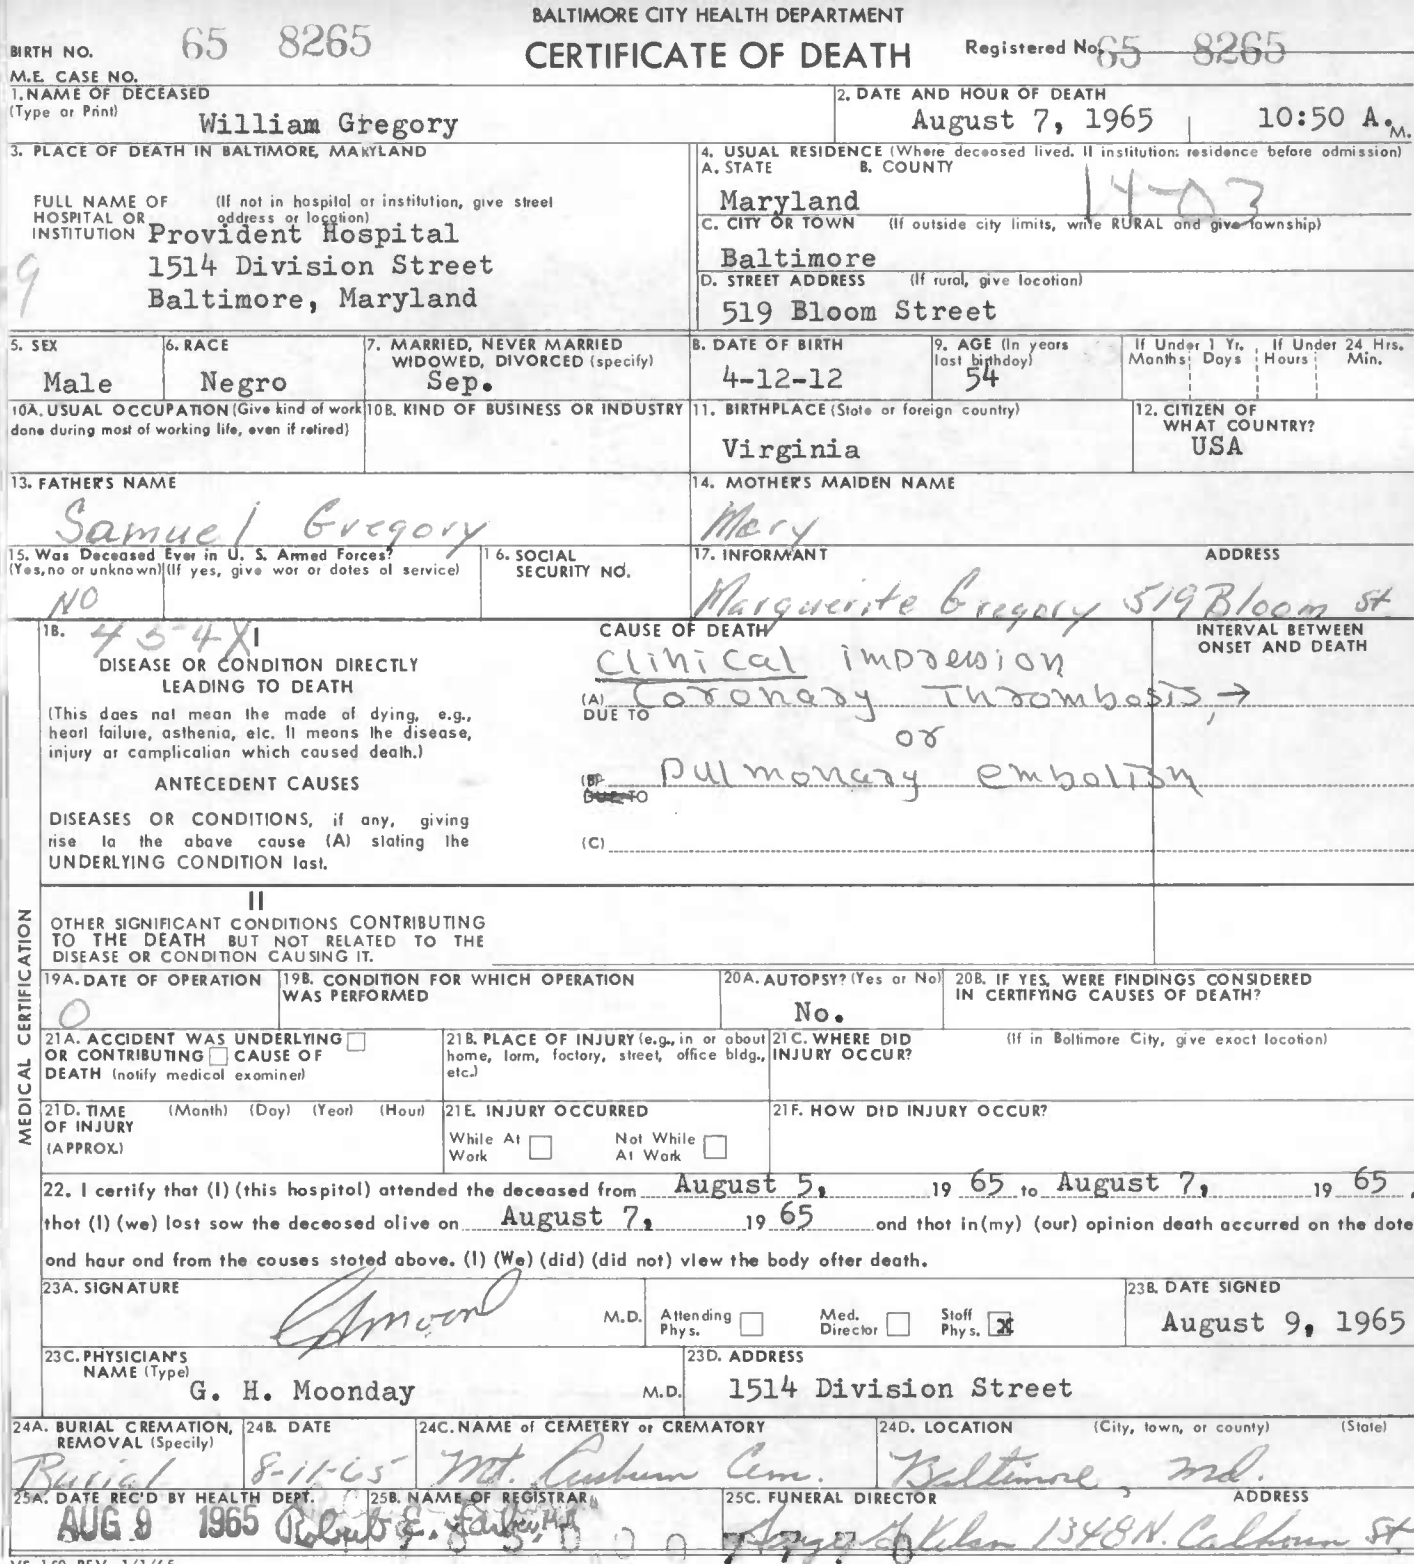 BALTIMORE CITY HEALTH DEPARTMENT
BIRTH NO. 65 8265 CERTIFICATE OF DEATH Registered No. 65 8265
M.E. CASE NO.
1. NAME OF DECEASED (Type or Print) William Gregory
2. DATE AND HOUR OF DEATH August 7, 1965 10:50 A. M.
3. PLACE OF DEATH IN BALTIMORE, MARYLAND
FULL NAME OF HOSPITAL OR INSTITUTION (If not in hospital or institution, give street address or location)
Provident Hospital
1514 Division Street
Baltimore, Maryland
9
4. USUAL RESIDENCE (Where deceased lived. If institution: residence before admission)
A. STATE B. COUNTY
Maryland 14-03
C. CITY OR TOWN (If outside city limits, write RURAL and give township)
Baltimore
D. STREET ADDRESS (If rural, give location)
519 Bloom Street
5. SEX Male
6. RACE Negro
7. MARRIED, NEVER MARRIED WIDOWED, DIVORCED (specify) Sep.
8. DATE OF BIRTH 4-12-12
9. AGE (In years last birthday) 54
If Under 1 Yr. Months Days If Under 24 Hrs. Hours Min.
10A. USUAL OCCUPATION (Give kind of work done during most of working life, even if retired)
10B. KIND OF BUSINESS OR INDUSTRY
11. BIRTHPLACE (State or foreign country) Virginia
12. CITIZEN OF WHAT COUNTRY? USA
13. FATHER'S NAME Samuel Gregory
14. MOTHER'S MAIDEN NAME Mary
15. Was Deceased Ever in U. S. Armed Forces? (Yes, no or unknown) (If yes, give war or dates of service) NO
16. SOCIAL SECURITY NO.
17. INFORMANT ADDRESS
Marguerite Gregory 519 Bloom St
18. I
DISEASE OR CONDITION DIRECTLY LEADING TO DEATH
(This does not mean the mode of dying, e.g., heart failure, asthenia, etc. It means the disease, injury or complication which caused death.)
ANTECEDENT CAUSES
DISEASES OR CONDITIONS, if any, giving rise to the above cause (A) stating the UNDERLYING CONDITION last.
CAUSE OF DEATH
Clinical impression
(A) Coronary Thrombosis, →
DUE TO
or
(B) Pulmonary embolism
DUE TO
(C)
INTERVAL BETWEEN ONSET AND DEATH
II
OTHER SIGNIFICANT CONDITIONS CONTRIBUTING TO THE DEATH BUT NOT RELATED TO THE DISEASE OR CONDITION CAUSING IT.
MEDICAL CERTIFICATION
19A. DATE OF OPERATION 0
19B. CONDITION FOR WHICH OPERATION WAS PERFORMED
20A. AUTOPSY? (Yes or No) No.
20B. IF YES, WERE FINDINGS CONSIDERED IN CERTIFYING CAUSES OF DEATH?
21A. ACCIDENT WAS UNDERLYING OR CONTRIBUTING CAUSE OF DEATH (notify medical examiner)
21B. PLACE OF INJURY (e.g., in or about home, farm, factory, street, office bldg., etc.)
21C. WHERE DID INJURY OCCUR? (If in Baltimore City, give exact location)
21D. TIME OF INJURY (APPROX.) (Month) (Day) (Year) (Hour)
21E. INJURY OCCURRED While At Work Not While At Work
21F. HOW DID INJURY OCCUR?
22. I certify that (I) (this hospital) attended the deceased from August 5, 19 65 to August 7, 19 65,
that (I) (we) last saw the deceased alive on August 7, 19 65 and that in (my) (our) opinion death occurred on the date
and hour and from the causes stated above. (I) (We) (did) (did not) view the body after death.
23A. SIGNATURE M.D.
Attending Phys. Med. Director Staff Phys. X
23B. DATE SIGNED August 9, 1965
23C. PHYSICIAN'S NAME (Type) G. H. Moonday M.D.
23D. ADDRESS 1514 Division Street
24A. BURIAL CREMATION, REMOVAL (Specify) Burial
24B. DATE 8-11-65
24C. NAME of CEMETERY or CREMATORY Mt. Auburn Cem.
24D. LOCATION (City, town, or county) (State) Baltimore, Md.
25A. DATE REC'D BY HEALTH DEPT. AUG 9 1965
25B. NAME OF REGISTRAR Robert E. Farber, M.D.
25C. FUNERAL DIRECTOR ADDRESS
1348 N. Calhoun St